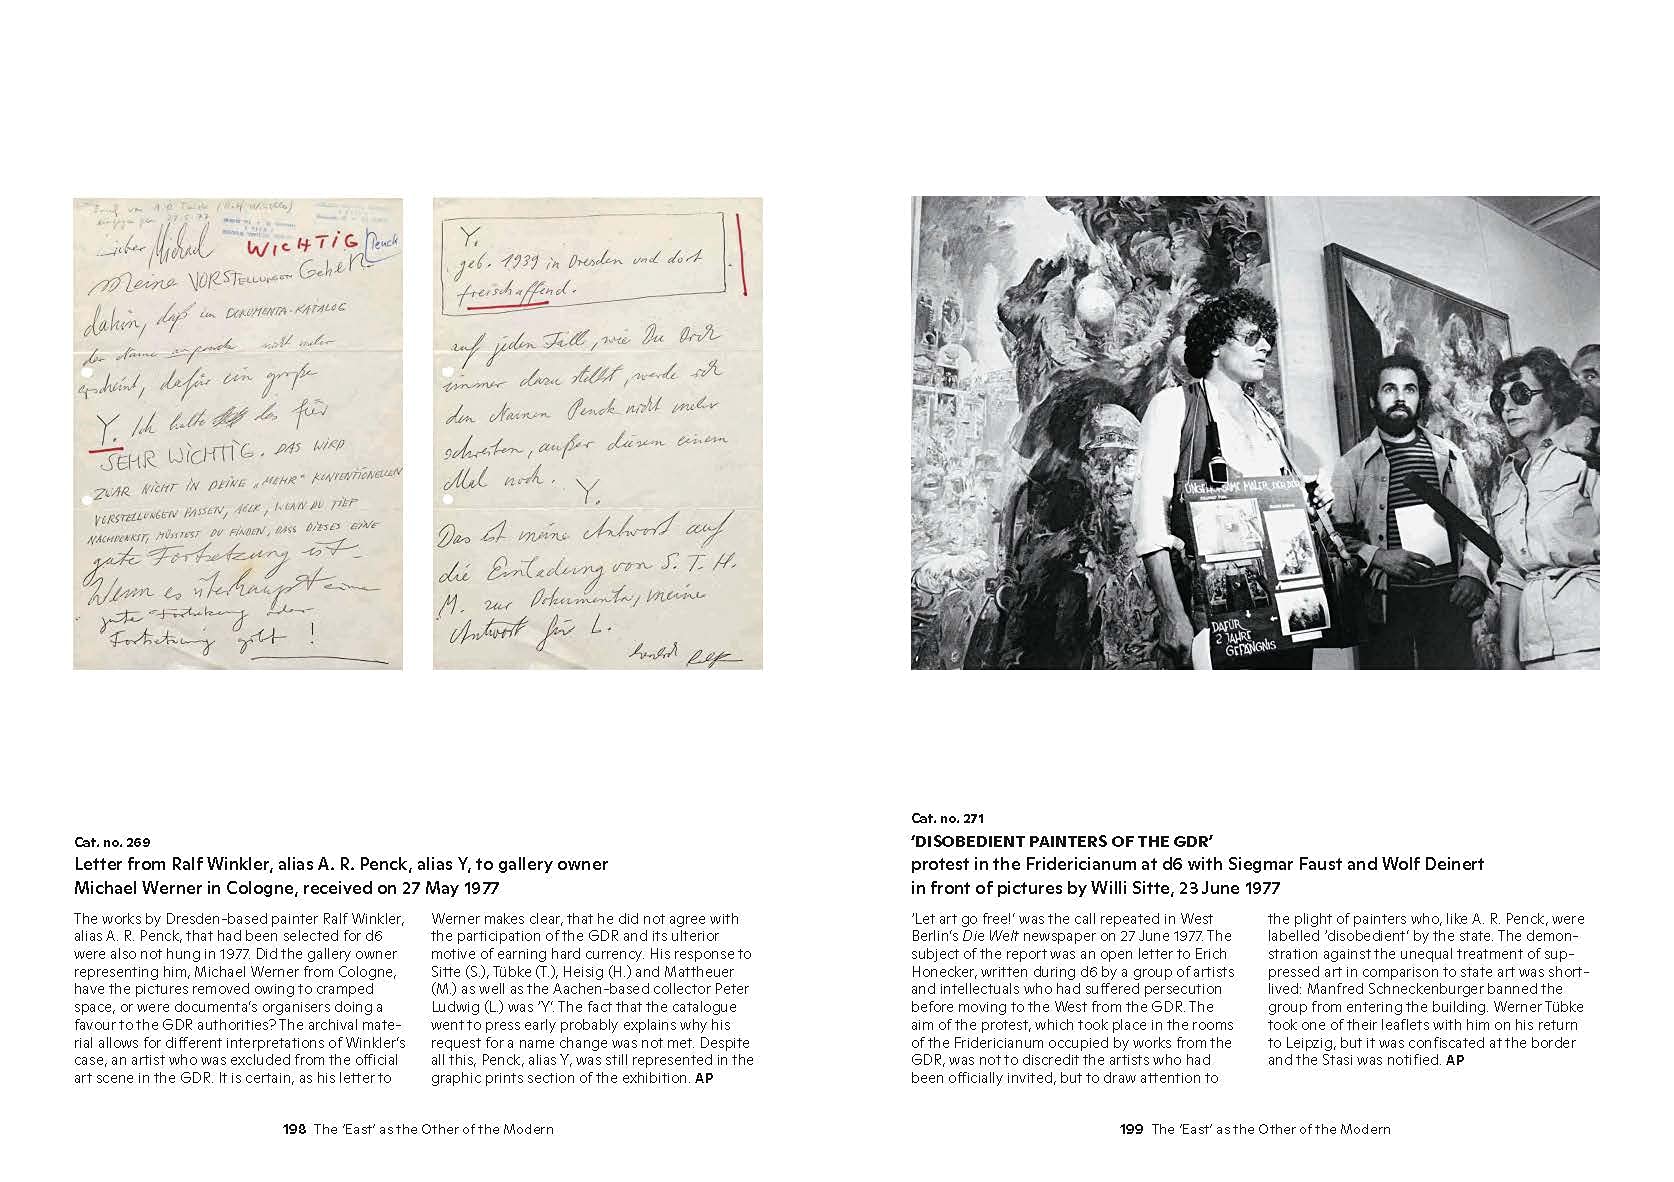 Lieber Michael
WICHTIG Penck
Meine VORSTELLUNGEN Gehen
dahin, daß im DOKUMENTA-KATALOG
der Name a.r. penck nicht mehr
erscheint, dafür ein große
Y. Ich halte das für
SEHR WICHTIG. DAS WIRD
ZWAR NICHT IN DEINE „MEHR" KONVENTIONELLEN
VORSTELLUNGEN PASSEN, ABER, WENN DU TIEF
NACHDENKST, MÜSSTEST DU FINDEN, DASS DIESES EINE
gute Fortsetzung ist.
Wenn es überhaupt eine
gute Fortsetzung oder
Fortsetzung gibt!
Y.
geb. 1939 in Dresden und dort
freischaffend.
auf jeden Fall, wie Du Dich
immer dazu stellst, werde ich
den Namen Penck nicht mehr
schreiben, außer diesem einem
Mal noch. Y.
Das ist meine Antwort auf
die Einladung von S. T. H.
M. zur Dokumenta, meine
Antwort für L.
herzlich Ralf
UNGEHORSAME MALER DER DDR
DAFÜR
2 JAHRE
GEFÄNGNIS
Cat. no. 269
Letter from Ralf Winkler, alias A. R. Penck, alias Y, to gallery owner
Michael Werner in Cologne, received on 27 May 1977
The works by Dresden-based painter Ralf Winkler,
alias A. R. Penck, that had been selected for d6
were also not hung in 1977. Did the gallery owner
representing him, Michael Werner from Cologne,
have the pictures removed owing to cramped
space, or were documenta's organisers doing a
favour to the GDR authorities? The archival mate-
rial allows for different interpretations of Winkler's
case, an artist who was excluded from the official
art scene in the GDR. It is certain, as his letter to
Werner makes clear, that he did not agree with
the participation of the GDR and its ulterior
motive of earning hard currency. His response to
Sitte (S.), Tübke (T.), Heisig (H.) and Mattheuer
(M.) as well as the Aachen-based collector Peter
Ludwig (L.) was 'Y'. The fact that the catalogue
went to press early probably explains why his
request for a name change was not met. Despite
all this, Penck, alias Y, was still represented in the
graphic prints section of the exhibition. AP
198 The 'East' as the Other of the Modern
Cat. no. 271
'DISOBEDIENT PAINTERS OF THE GDR'
protest in the Fridericianum at d6 with Siegmar Faust and Wolf Deinert
in front of pictures by Willi Sitte, 23 June 1977
'Let art go free!' was the call repeated in West
Berlin's Die Welt newspaper on 27 June 1977. The
subject of the report was an open letter to Erich
Honecker, written during d6 by a group of artists
and intellectuals who had suffered persecution
before moving to the West from the GDR. The
aim of the protest, which took place in the rooms
of the Fridericianum occupied by works from the
GDR, was not to discredit the artists who had
been officially invited, but to draw attention to
the plight of painters who, like A. R. Penck, were
labelled 'disobedient' by the state. The demon-
stration against the unequal treatment of sup-
pressed art in comparison to state art was short-
lived: Manfred Schneckenburger banned the
group from entering the building. Werner Tübke
took one of their leaflets with him on his return
to Leipzig, but it was confiscated at the border
and the Stasi was notified. AP
199 The 'East' as the Other of the Modern